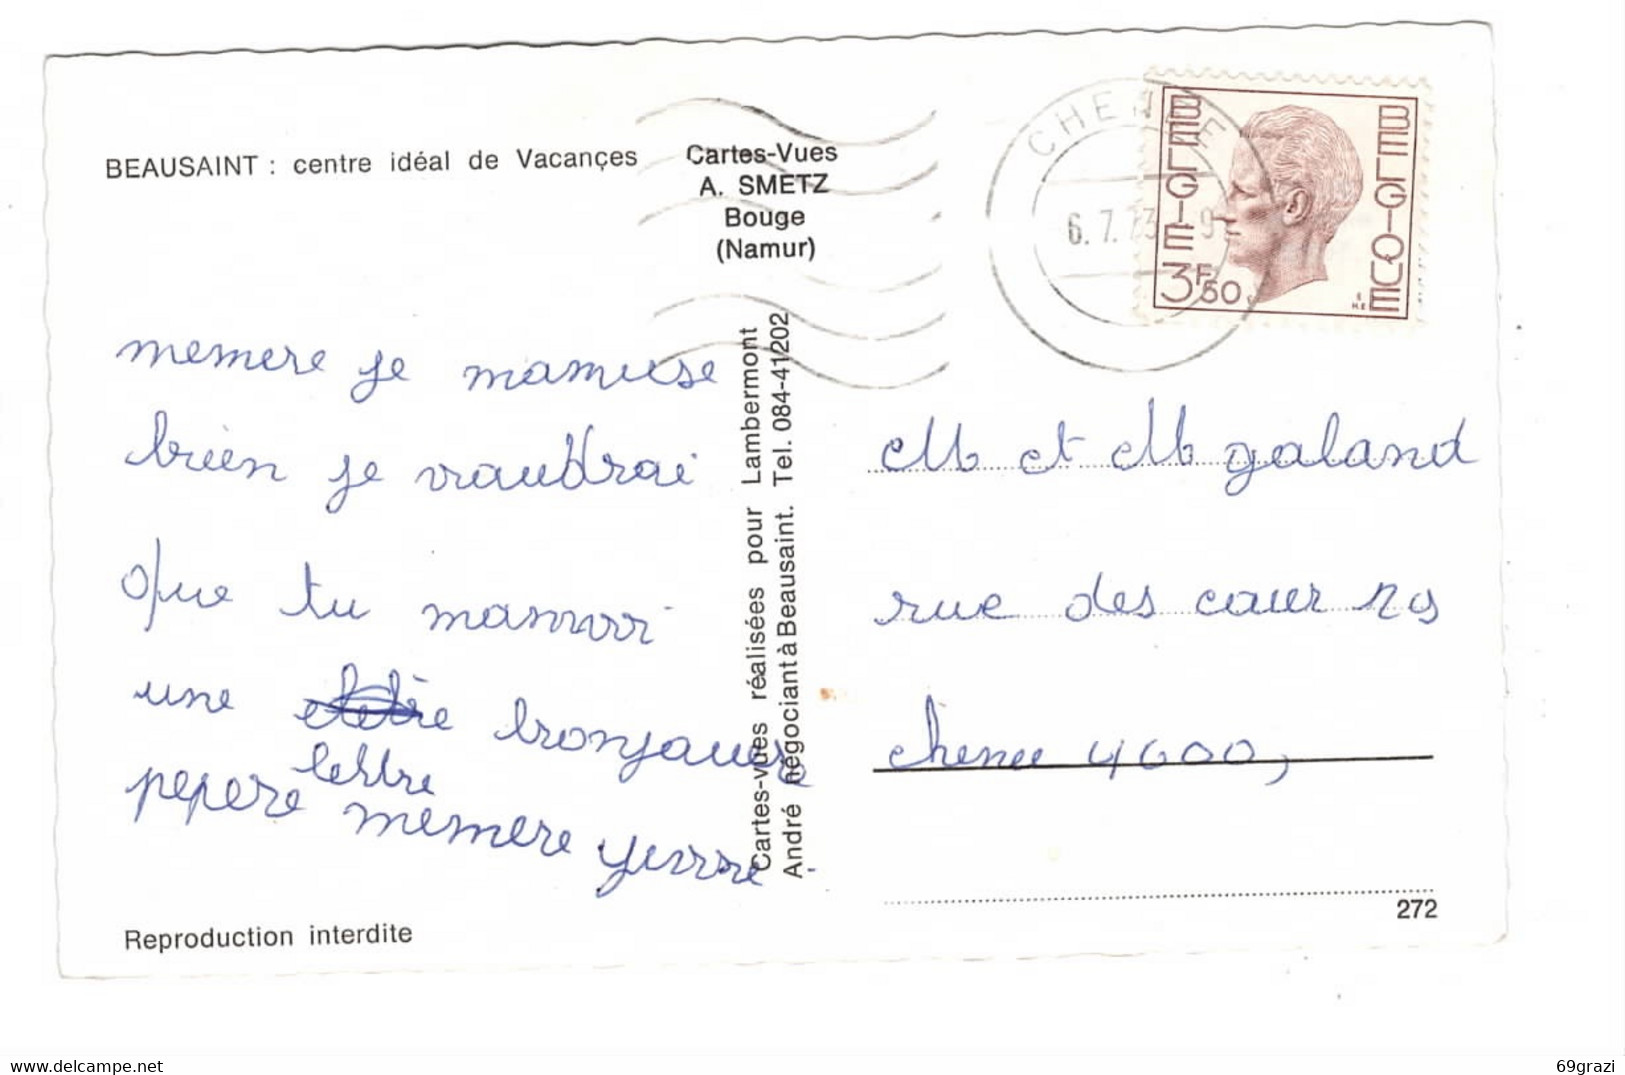 BEAUSAINT : centre idéal de Vacançes
Cartes-Vues
A. SMETZ
Bouge
(Namur)
CHENEE
6.7.73
BELGIE
BELGIQUE
3F50
memere je mamuse
bien je vraudrai
que tu manvoi
une bronjauere
lettre
pepere memere
Cartes-vues réalisées pour Lambermont
André négociant à Beausaint. Tel. 084-41202
M et M galand
rue des caur 29
chenee 4600,
272
Reproduction interdite
delcampe.net
69grazi